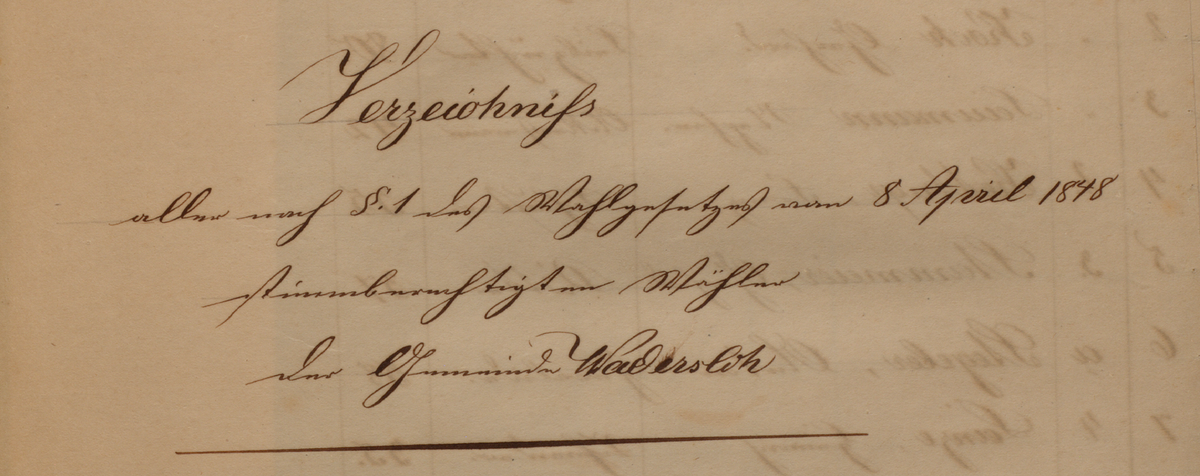 Verzeichniß
aller nach §. 1 des Wahlgesetzes von 8 April 1848
stimmberechtigten Wähler
der Gemeinde Wadersloh